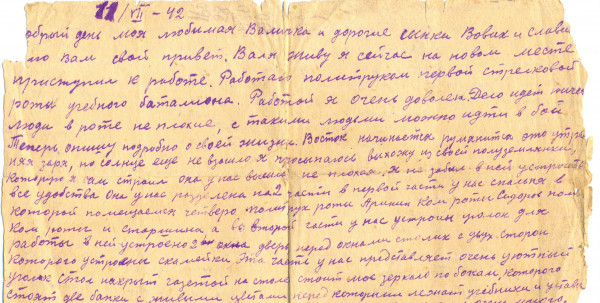 11/VII – 42
обрый день моя любимая Валичка и дорогие сынки Вовик и Слави
лю Вам свой привет. Валя живу я сейчас на новом месте
приступил к работе. Работаю политруком первой стрелковой
роты учебного баталиона. Работой я очень доволен. Дело идет
люди в роте не плохие, с такими людьми можно идти в бой.
Теперь опишу подробно о своей жизни. Восток начинается румянится это утрен
няя заря, но солнце еще не взошло я просыпаюсь выхожу из своей полуземлянки,
которую я сам строил она у нас вышла не плохая. Я не забыл в ней устроить
все удобства Она у нас разделена на 2 части в первой части у нас спальня в
которой помещаемся четверо политрук роты Яришин ком роты Сидоров пом
ком роты и старшина а во второй части у нас устроин уголок для
работы в ней устроено 2 окна дверь перед окнами столик с двух сторон
которого устроены скамейки Эта часть у нас представляет очень уютный
уголок стол накрыт газетой на столе стоит мое зеркало по бокам, которого
стоят две банки с живыми цветами перед которыми лежат учебники и устава